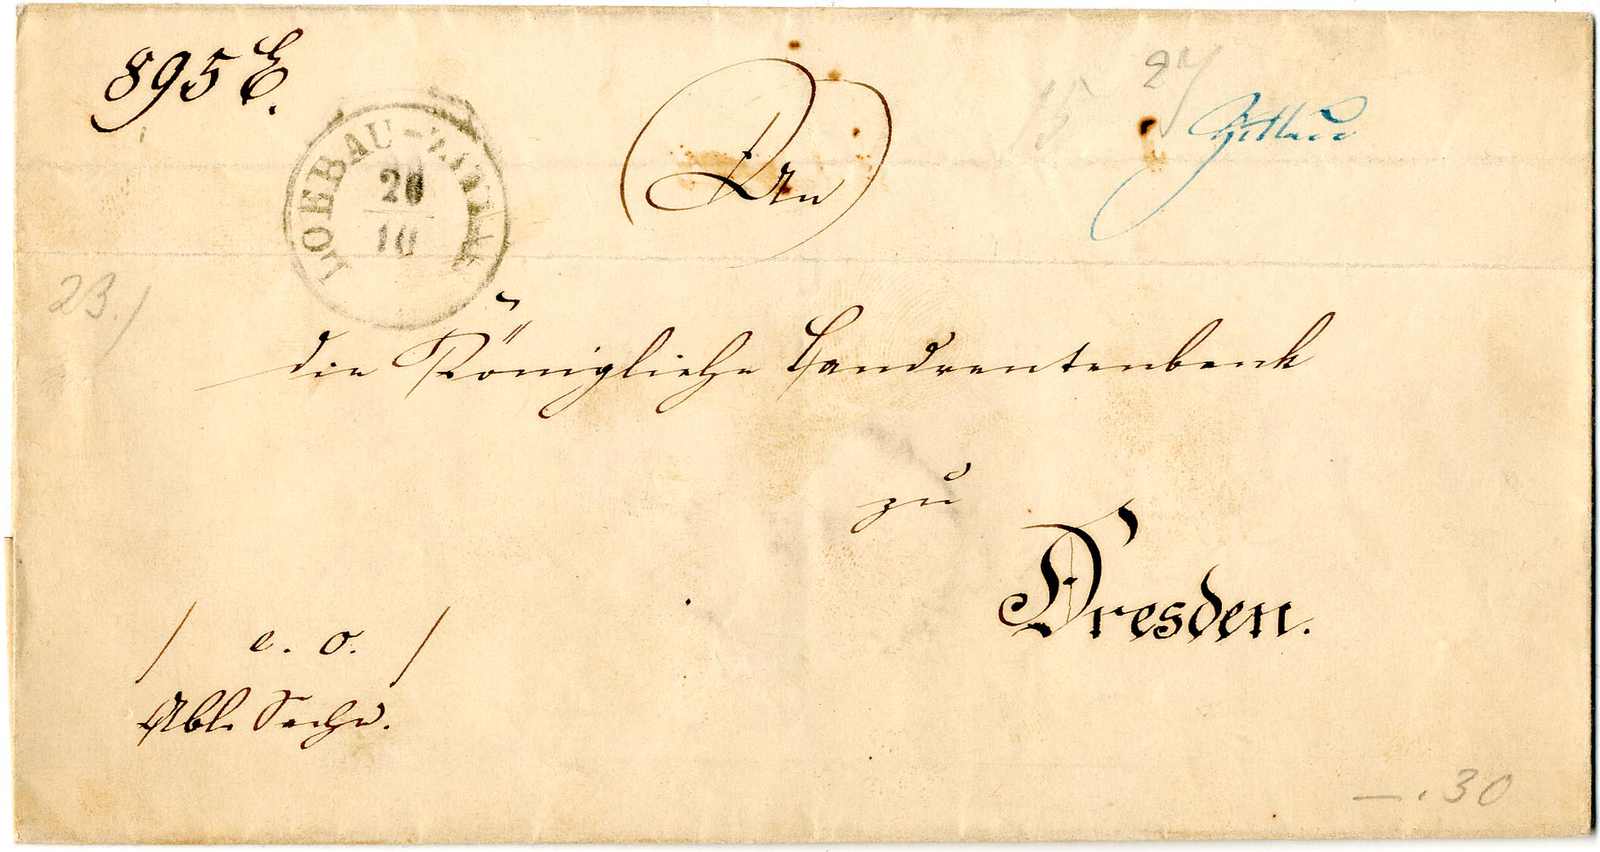 895 E.
LOEBAU-ZITTAU
20
10
27
15
Zittau
An
23.)
die Königliche Landrentenbank
zu
Dresden.
/ e. o. /
Abl. Sache.
—.30